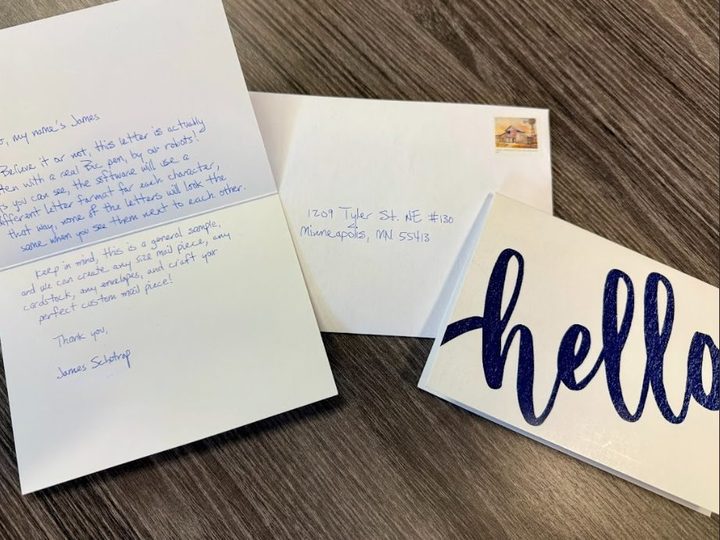 o, my name's James
Believe it or not, this letter is actually
tten with a real Bic pen, by our robots!
s you can see, the software will use a
fferent letter format for each character,
that way, none of the letters will look the
same when you see them next to each other.
Keep in mind, this is a general sample,
and we can create any size mail piece, any
cardstock, any envelopes, and craft your
perfect custom mail piece!
Thank you,
James Schotrop
1209 Tyler St. NE #130
Minneapolis, MN 55413
hello